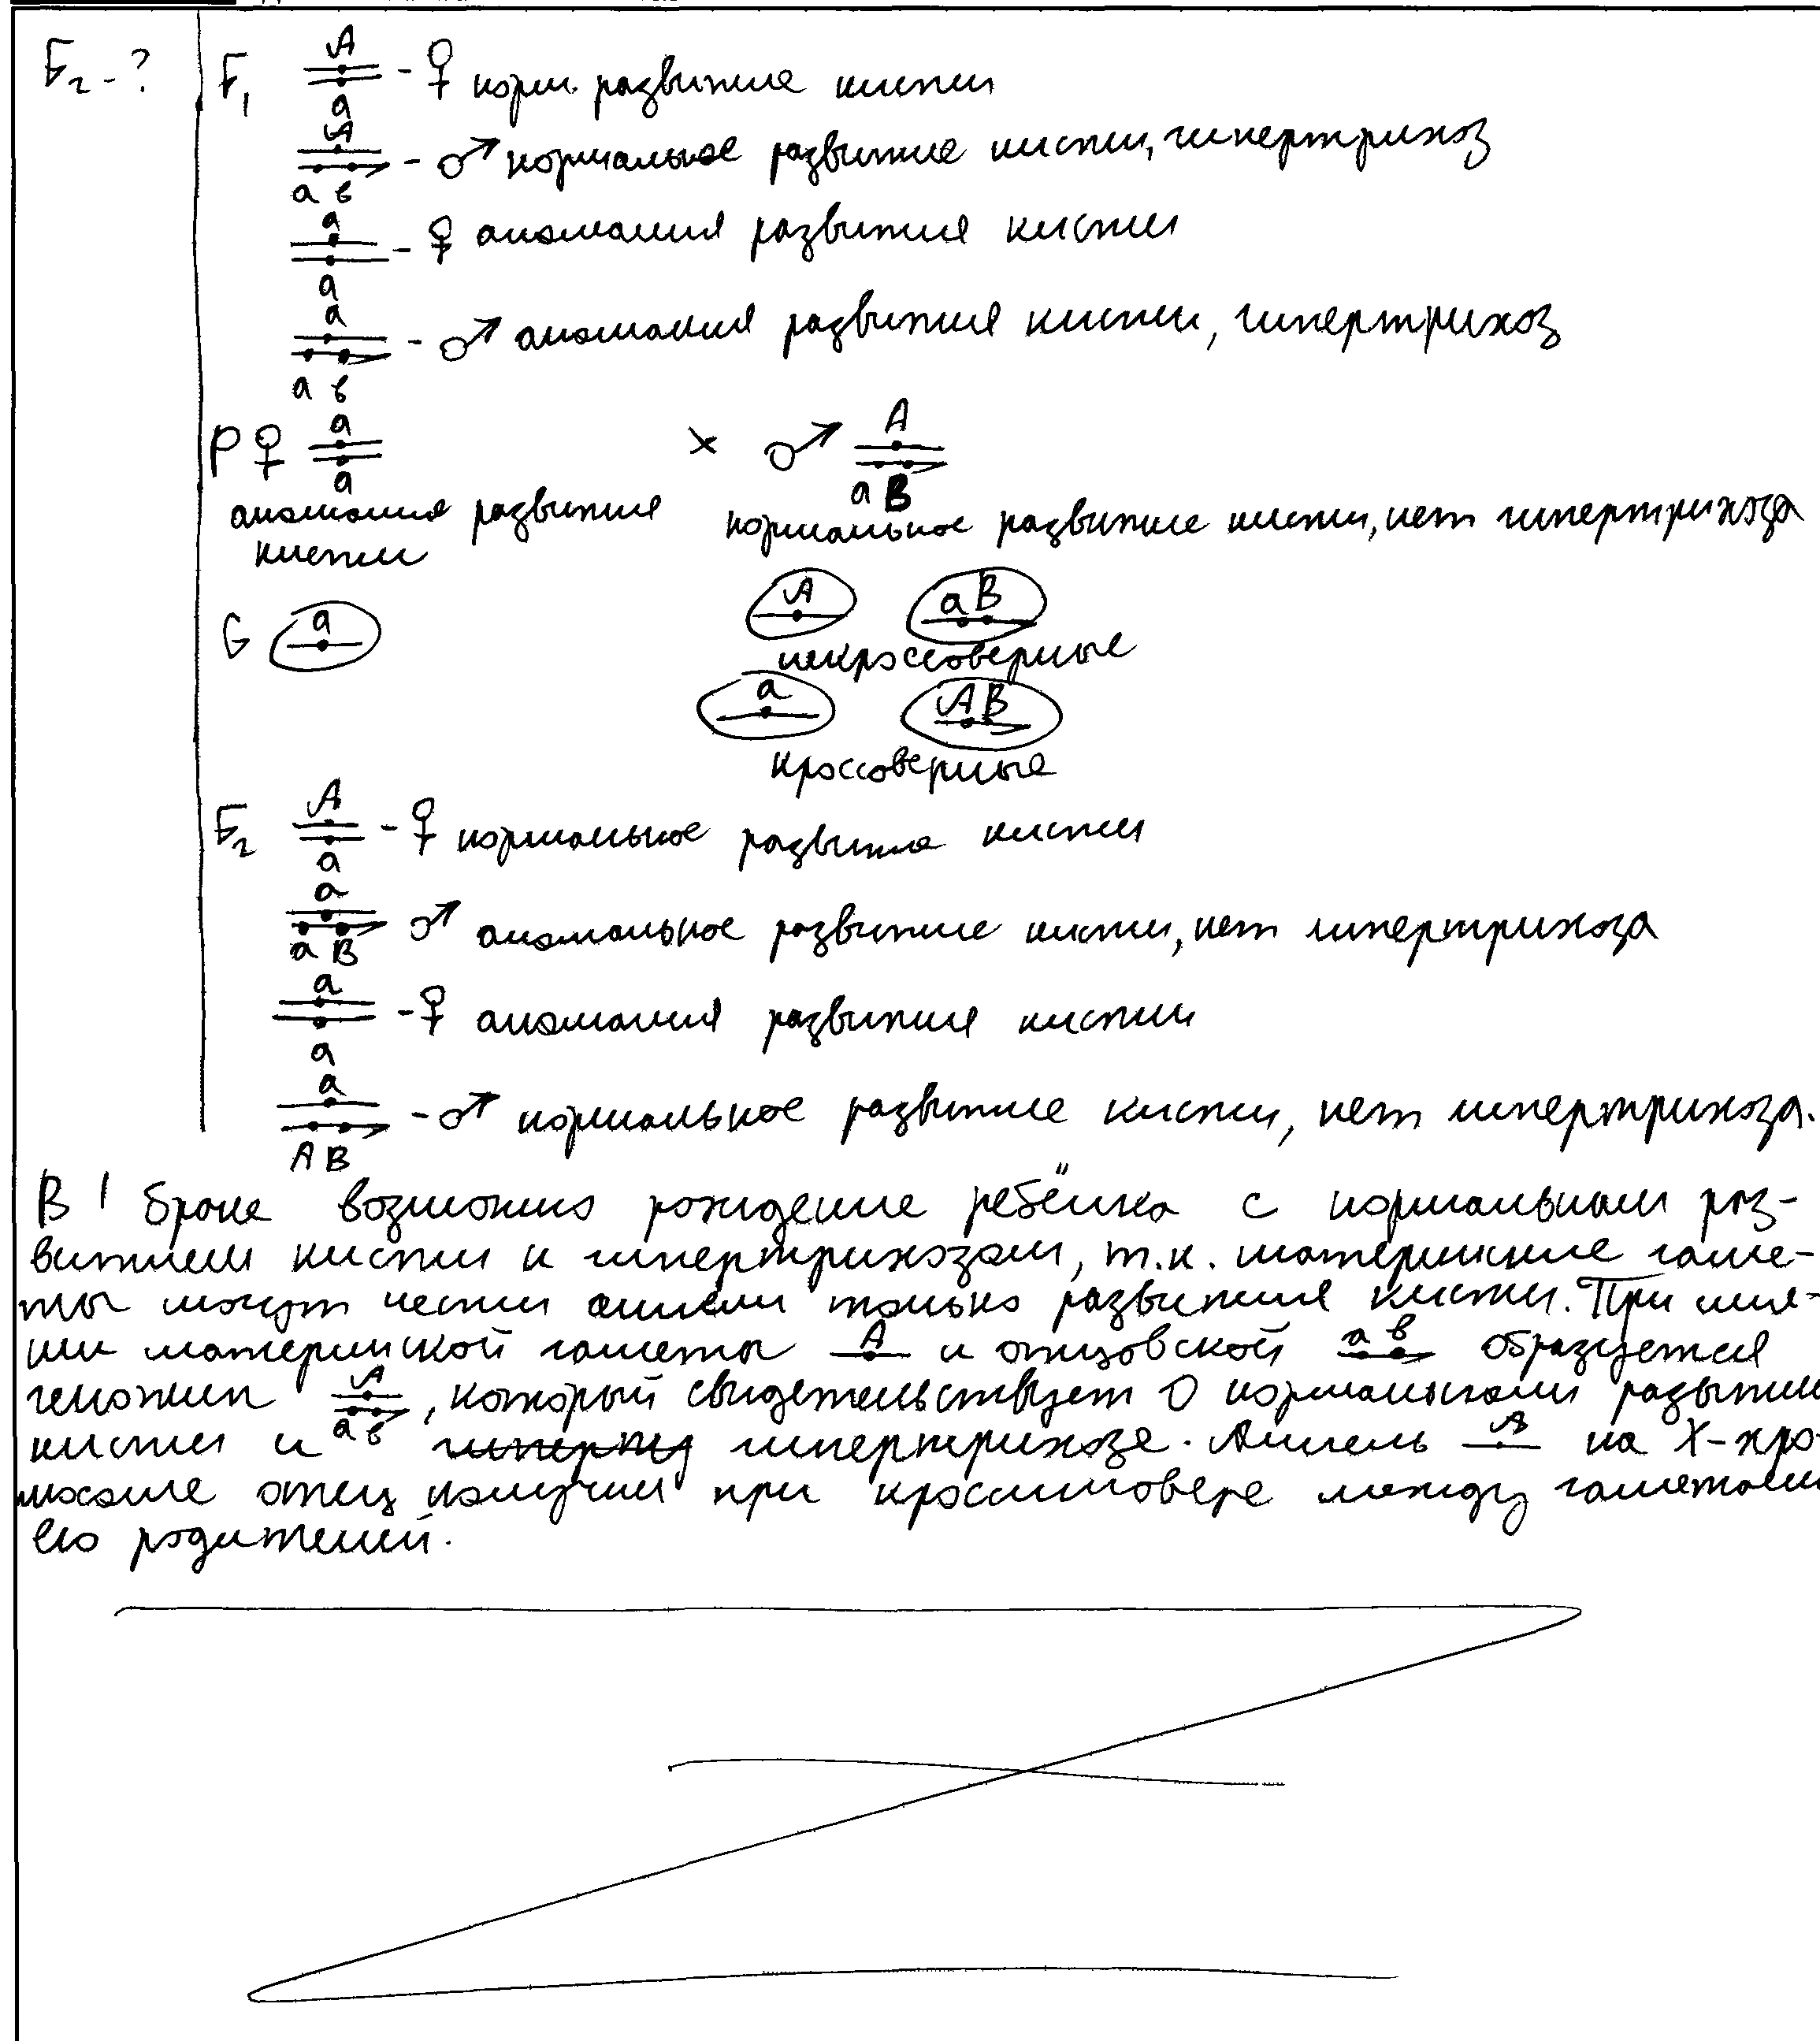 F₂ - ?
F₁ A/a - ♀ норм. развитие кисти
A/aв - ♂ нормальное развитие кисти, гипертрихоз
a/a - ♀ аномалия развития кисти
a/aв - ♂ аномалия развития кисти, гипертрихоз
P ♀ a/a × ♂ A/aB
аномалия развития нормальное развитие кисти, нет гипертрихоза
кисти
G a A aB
некроссоверные
a AB
кроссоверные
F₂ A/a - ♀ нормальное развитие кисти
a/aB ♂ аномальное развитие кисти, нет гипертрихоза
a/a - ♀ аномалия развития кисти
a/AB - ♂ нормальное развитие кисти, нет гипертрихоза.
В 1 браке возможно рождение ребёнка с нормальным раз-
витием кисти и гипертрихозом, т.к. материнские гаме-
ты могут нести аллели только развития кисти. При слия-
нии материнской гаметы A и отцовской aв образуется
генотип A/aв, который свидетельствует о нормальном развитии
кисти и гипертрихозе. Аллель на X-хро-
мосоме отец получил при кроссинговере между гаметами
его родителей.